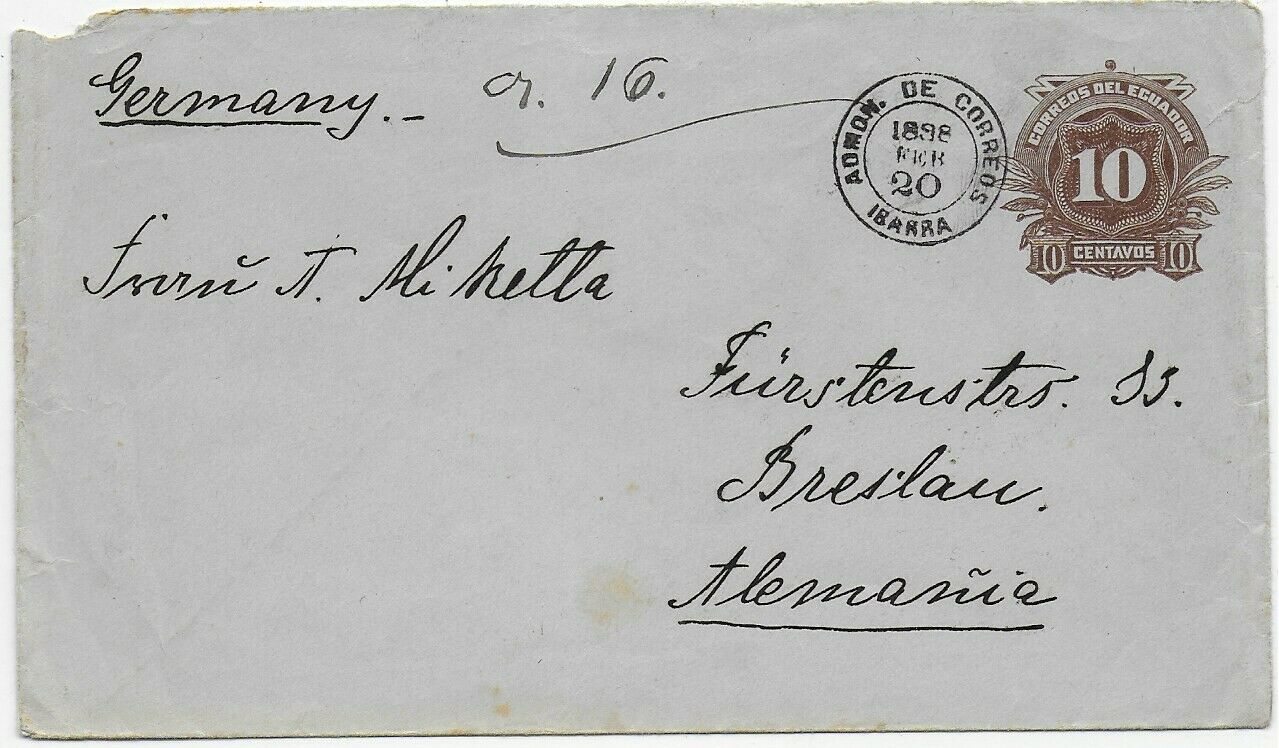 Germany.-
a. 16.
ADMON. DE CORREOS
1898
FEB
20
IBARRA
CORREOS DEL ECUADOR
10
10 CENTAVOS 10
Fraŭ A. Miketta
Fürstenstrs. 83.
Breslau.
Alemañia